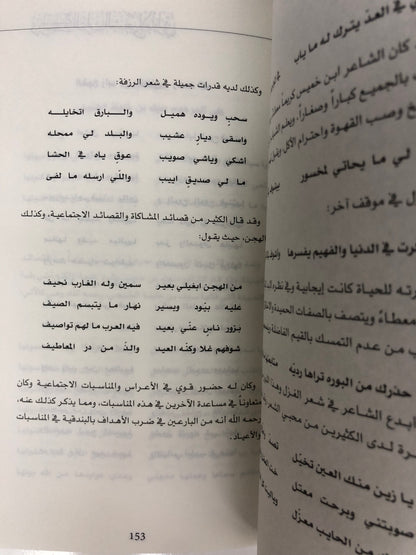 وكذلك لديه قدرات جميلة في شعر الرزفة:
سحبٍ ويوده هميل والبارق اتخايله
واسقى ديارٍ عشيب والبلد لي ممحله
اشكي وياشي صويب عوقٍ ياه في الحشا
ما لي صديقٍ اييب واللّي ارسله ما لفى
وقد قال الكثير من قصائد المشاكاة والقصائد الاجتماعية، وكذلك
الهجن، حيث يقول:
من الهجن ابغيلي بعير سمين وله الغارب نحيف
عليه بنود ويسير نهار ما يتبسم الصيف
بزور ناسٍ عنّي بعيد فيه العرب ما لهم تواصيف
شوفهم غلا وكنه العيد والذ من در المعاطيف
وكان له حضور قوي في الأعراس والمناسبات الاجتماعية وكان
متعاوناً في مساعدة الآخرين في هذه المناسبات، ومما يذكر كذلك عنه،
رحمه الله أنه من البارعين في ضرب الأهداف بالبندقية في المناسبات
والأعياد.
153
في الغد يترك له ما ياب
كان الشاعر ابن خميس كريماً
بالجميع كباراً وصغاراً، ويعلم
وصب القهوة واحترام الأكل
لي ما يحاتي لمخسور
في موقف آخر:
في الدنيا والفهيم يفسرها
للحياة كانت إيجابية في نظره
معطاءً ويتصف بالصفات الحميدة
من عدم التمسك بالقيم الفاضلة
حذرك من البوره تراها رديه
أبدع الشاعر في شعر الغزل
لدى الكثيرين من محبي الشعر
يا زين منك العين تخيّل
صويبتني وبرحت معتل
الحايب معزّل